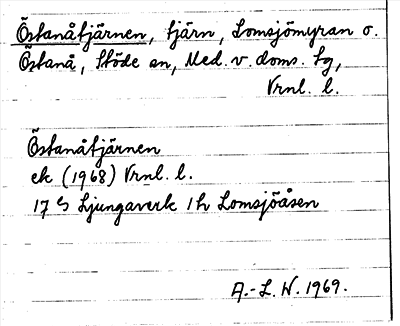 Östanåtjärnen, tjärn, Lomsjömyran o.
Östanå, Stöde sn, Med. v. doms. tg,
Vrnl. l.
Östanåtjärnen
ek (1968) Vrnl. l.
17 G Ljungaverk 1h Lomsjöåsen
A.-L. N. 1969.